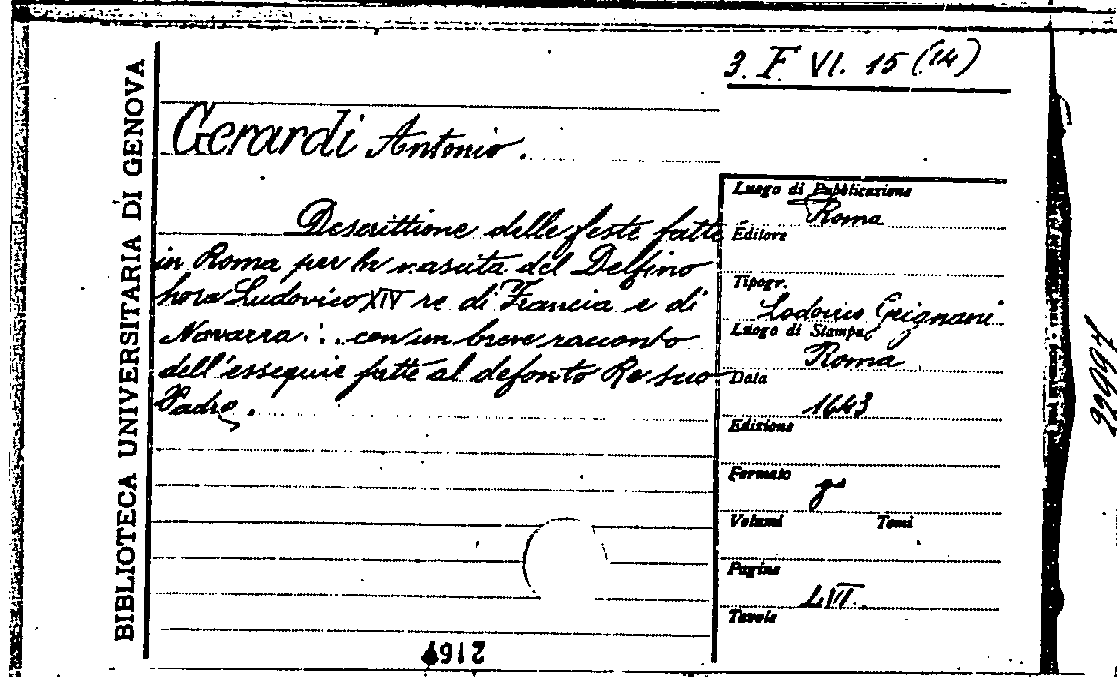 3. F VI. 15 (14)
BIBLIOTECA UNIVERSITARIA DI GENOVA
Gerardi Antonio.
Descrittione delle feste fatte
in Roma per la nascita del Delfino
hora Ludovico XIV re di Francia e di
Navarra... con un breve racconto
dell'essequie fatte al defonto Re suo
Padre.
Luogo di Pubblicazione
Roma
Editore
Tipogr.
Lodovico Grignani
Luogo di Stampa
Roma
Data
1643
Edizione
Formato
Volumi Tomi
Pagine
LVII.
Tavole